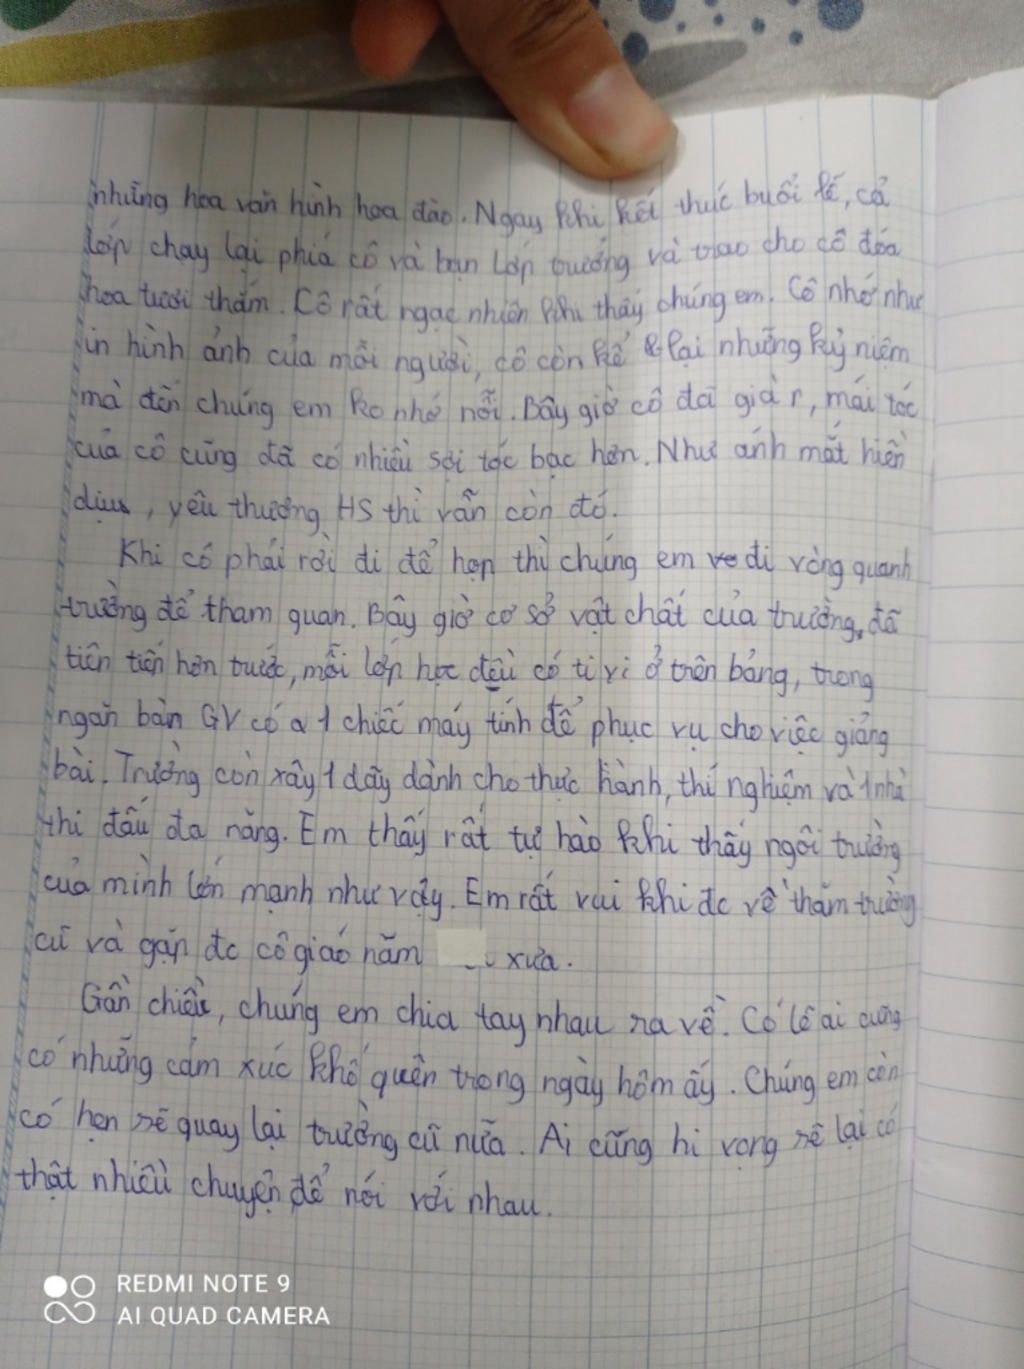 những hoa văn hình hoa đào. Ngay khi kết thúc buổi lễ, cả
lớp chạy lại phía cô và bạn lớp trưởng và trao cho cô đóa
hoa tươi thắm. Cô rất ngạc nhiên khi thấy chúng em. Cô nhớ như
in hình ảnh của mỗi người, cô còn kể lại những kỷ niệm
mà đến chúng em ko nhớ nỗi. Bây giờ cô đã già r, mái tóc
của cô cũng đã có nhiều sợi tóc bạc hơn. Như ánh mắt hiền
dịu, yêu thương HS thì vẫn còn đó.
Khi cô phải rời đi để họp thì chúng em đi vòng quanh
trường để tham quan. Bây giờ cơ sở vật chất của trường, đã
tiên tiến hơn trước, mỗi lớp học đều có ti vi ở trên bảng, trong
ngăn bàn GV có 1 chiếc máy tính để phục vụ cho việc giảng
bài. Trường còn xây 1 dãy dành cho thực hành, thí nghiệm và 1 nhà
thi đấu đa năng. Em thấy rất tự hào khi thấy ngôi trường
của mình lớn mạnh như vậy. Em rất vui khi đc về thăm trường
cũ và gặp đc cô giáo năm xưa.
Gần chiều, chúng em chia tay nhau ra về. Có lẽ ai cũng
có những cảm xúc khó quên trong ngày hôm ấy. Chúng em còn
có hẹn sẽ quay lại trường cũ nữa. Ai cũng hi vọng sẽ lại có
thật nhiều chuyện để nói với nhau.
REDMI NOTE 9
AI QUAD CAMERA